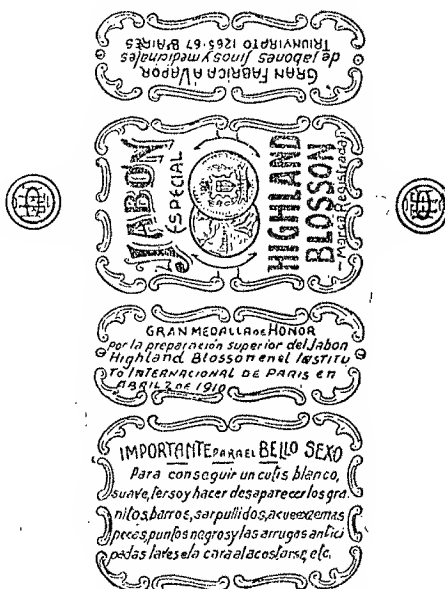 GRAN FABRICA A VAPOR
de jabones finos y medicinales
TRIUNVIRATO 1265-67 Bs AIRES
JABON
ESPECIAL
HIGHLAND
BLOSSON
Marca Registrada
GRAN MEDALLA DE HONOR
por la preparación superior del Jabon
Highland Blosson en el INSTITU
TO INTERNACIONAL DE PARIS en
ABRIL 2 DE 1910
IMPORTANTE PARA EL BELLO SEXO
Para conseguir un cutis blanco,
suave, terso y hacer desaparecer los gra
nitos, barros, sarpullidos, acne exzemas
pecas, puntos negros y las arrugas antici
padas lavese la cara al acostarse, etc.